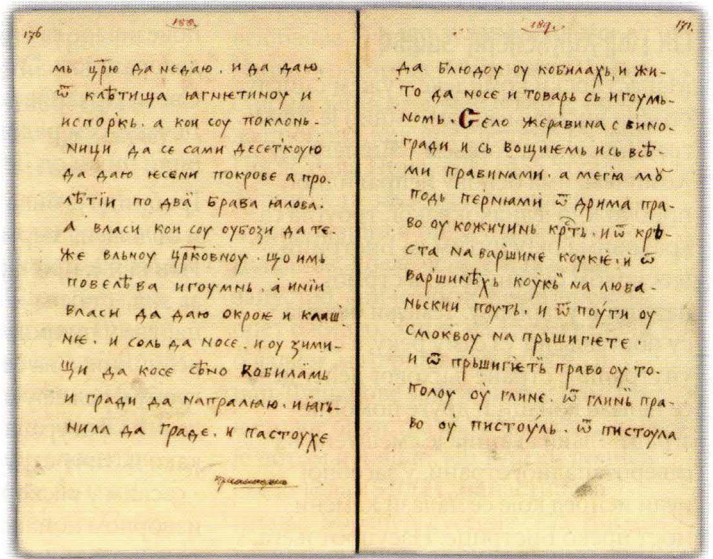 188.
176
мь цр҃ю да не даю, и да даю
ѿ клѣтища ꙗгнѥтиноу и
испорькь. а кои соу поклонь-
ници да се сами десеткоую
да даю ѥсени покрове а про-
лѣтїи по два брава ꙗлова.
а власи кои соу оубози да те-
же вльноу цр҃ковноу. що имь
повелѣва игоумнь. а инїи
власи да даю окроѥ и клаш-
нѥ. и соль да носе. и оу зими-
щи да косе сѣно кобиламь
и гради да направлꙗю. и ꙗгь-
нила да граде. и пастоухе
189.
171.
да блюдоу оу кобилахь, и жи-
то да носе и товарь сь игоумь-
номь. Село жеравина с вино-
гради и сь вощиѥмь и сь всѣ-
ми правинами. а мегꙗ моу
подь перниꙗми ѿ дрима пра-
во оу кожичинь крⷭ҇ть. и ѿ крь-
ста на варшине коукѥ. и ѿ
варшинѣхь коукь на люва-
ньскии поуть. и ѿ поути оу
смоквоу на прьшигѥте.
и ѿ прьшигѥть право оу то-
полоу оу глине. ѿ глинь пра-
во оу пистоуль. ѿ пистоула